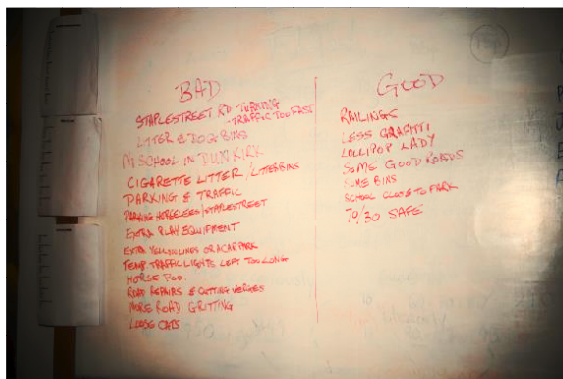 BAD
STAPLESTREET RD TURNING
- TRAFFIC TOO FAST
LITTER & DOG BINS
NO SCHOOL IN DUNKIRK
CIGARETTE LITTER / LITTERBINS
PARKING & TRAFFIC
PARKING /STAPLESTREET
EXTRA PLAY EQUIPMENT
EXTRA YELLOW LINES OR A CAR PARK
TEMP. TRAFFIC LIGHTS LEFT TOO LONG
HORSE POO.
ROAD REPAIRS & CUTTING VERGES
MORE ROAD GRITTING
LOOSE CATS
GOOD
RAILINGS
LESS GRAFITTI
LOLLIPOP LADY
SOME GOOD ROADS
SOME BINS
SCHOOL CLOSE TO PARK
20/30 SAFE